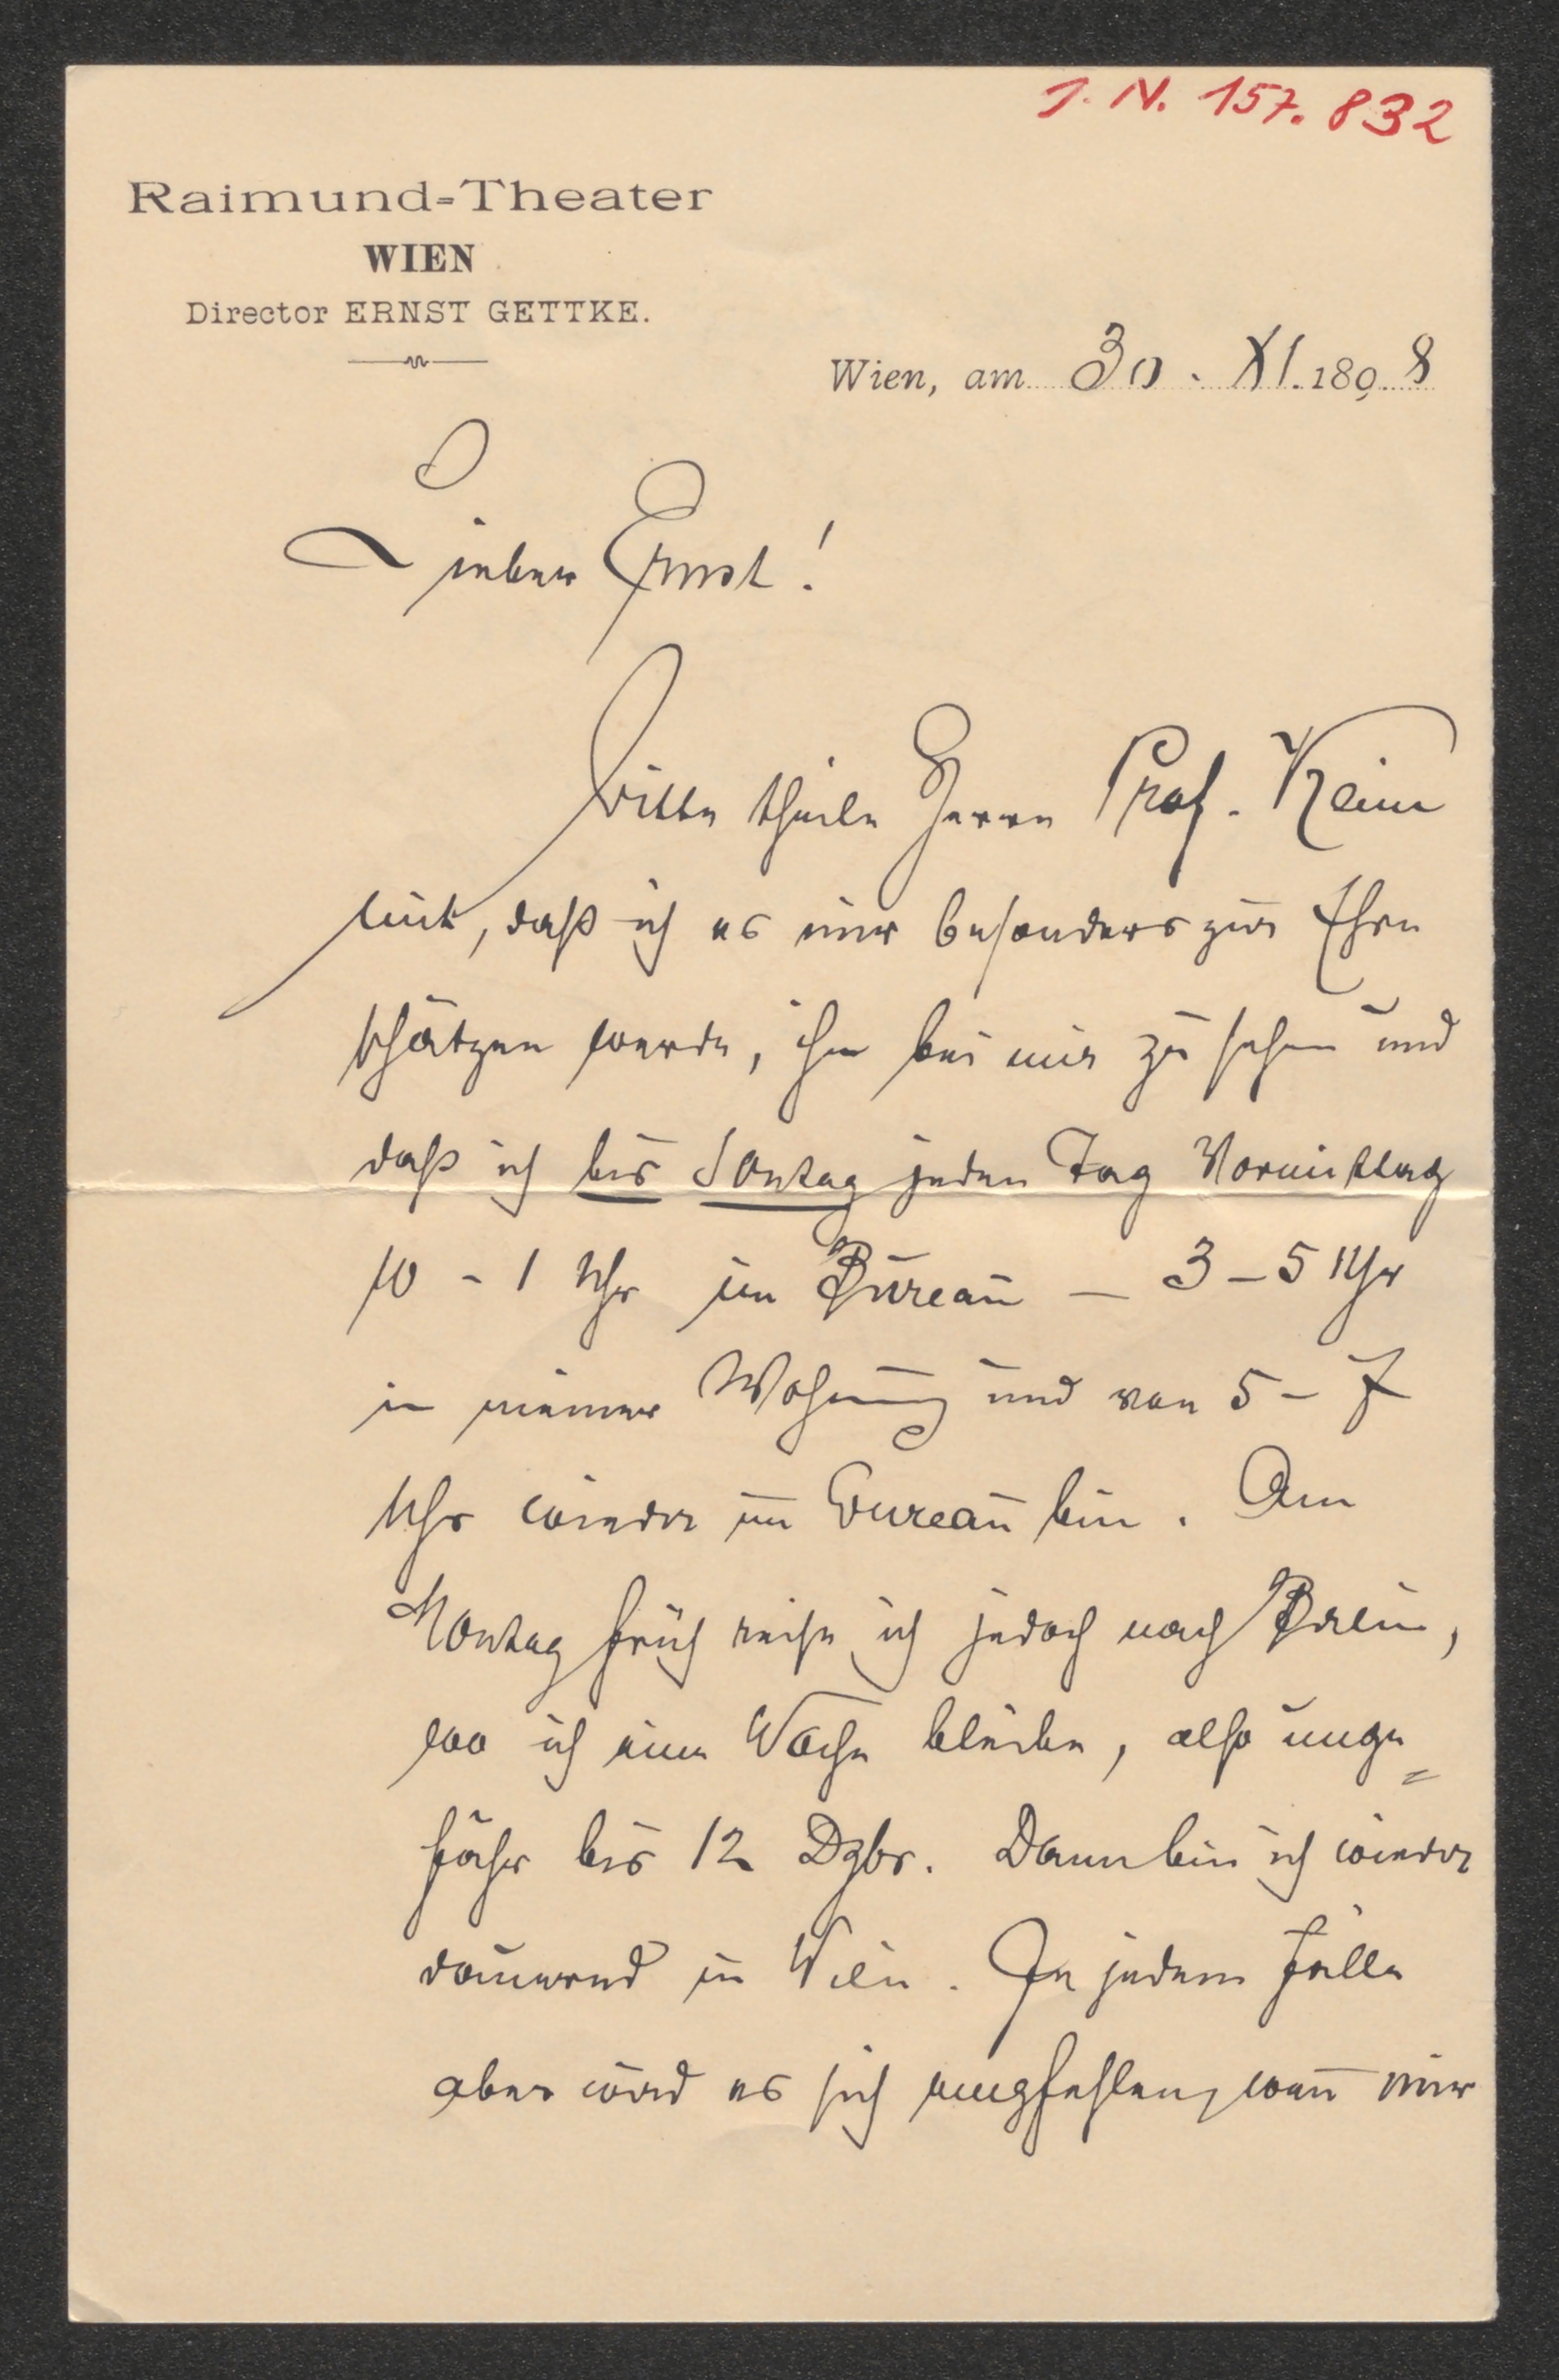 J. N. 157.832
Raimund-Theater
WIEN
Director ERNST GETTKE.
Wien, am 30. XI. 1898
Lieber Ernst!
Bitte theile Herrn Prof. Keim
mit, daß ich es mir besonders zur Ehre
schätzen werde, ihn bei mir zu sehen und
daß ich bis Sontag jeden Tag Vormittag
10 - 1 Uhr im Bureau — 3 - 5 Uhr
in meiner Wohnung und von 5 - 7
Uhr wieder im Bureau bin. Am
Montag früh reise ich jedoch nach Berlin,
wo ich eine Woche bleibe, also unge=
fähr bis 12 Dzbr. Dann bin ich wieder
dauernd in Wien. In jedem Falle
aber wird es sich empfehlen, wenn mir